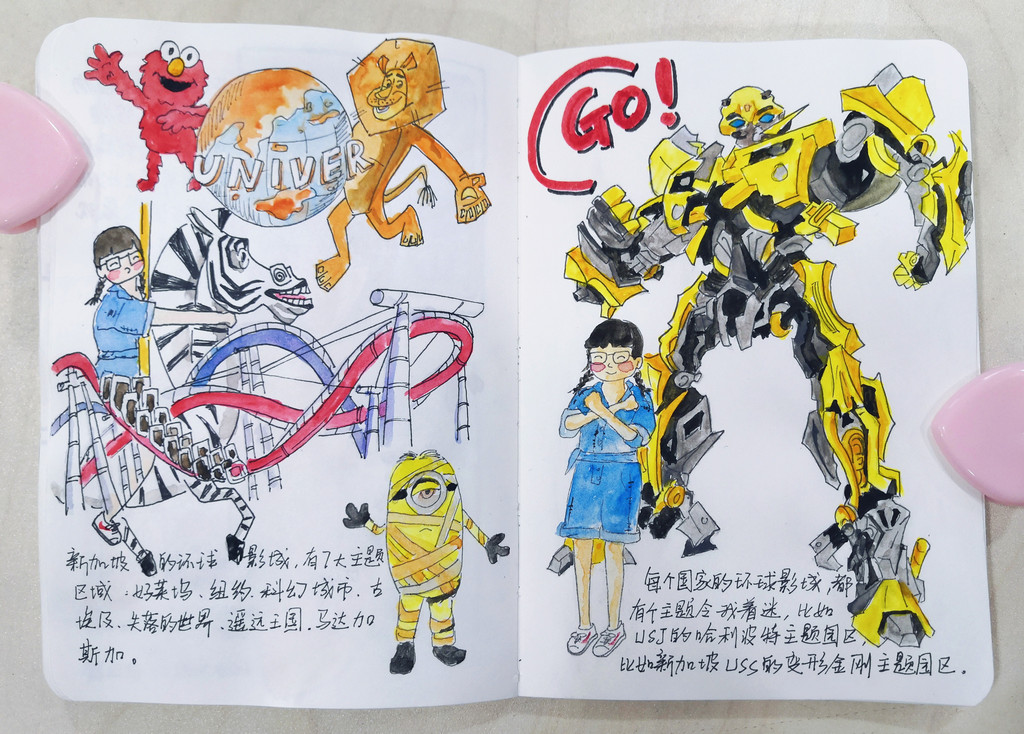 UNIVER
新加坡的环球影城,有7大主题
区域:好莱坞、纽约、科幻城市、古
埃及、失落的世界、遥远王国、马达加
斯加。
GO!
每个国家的环球影城,都
有个主题令我着迷,比如
USJ的哈利波特主题园区,
比如新加坡USS的变形金刚主题园区。